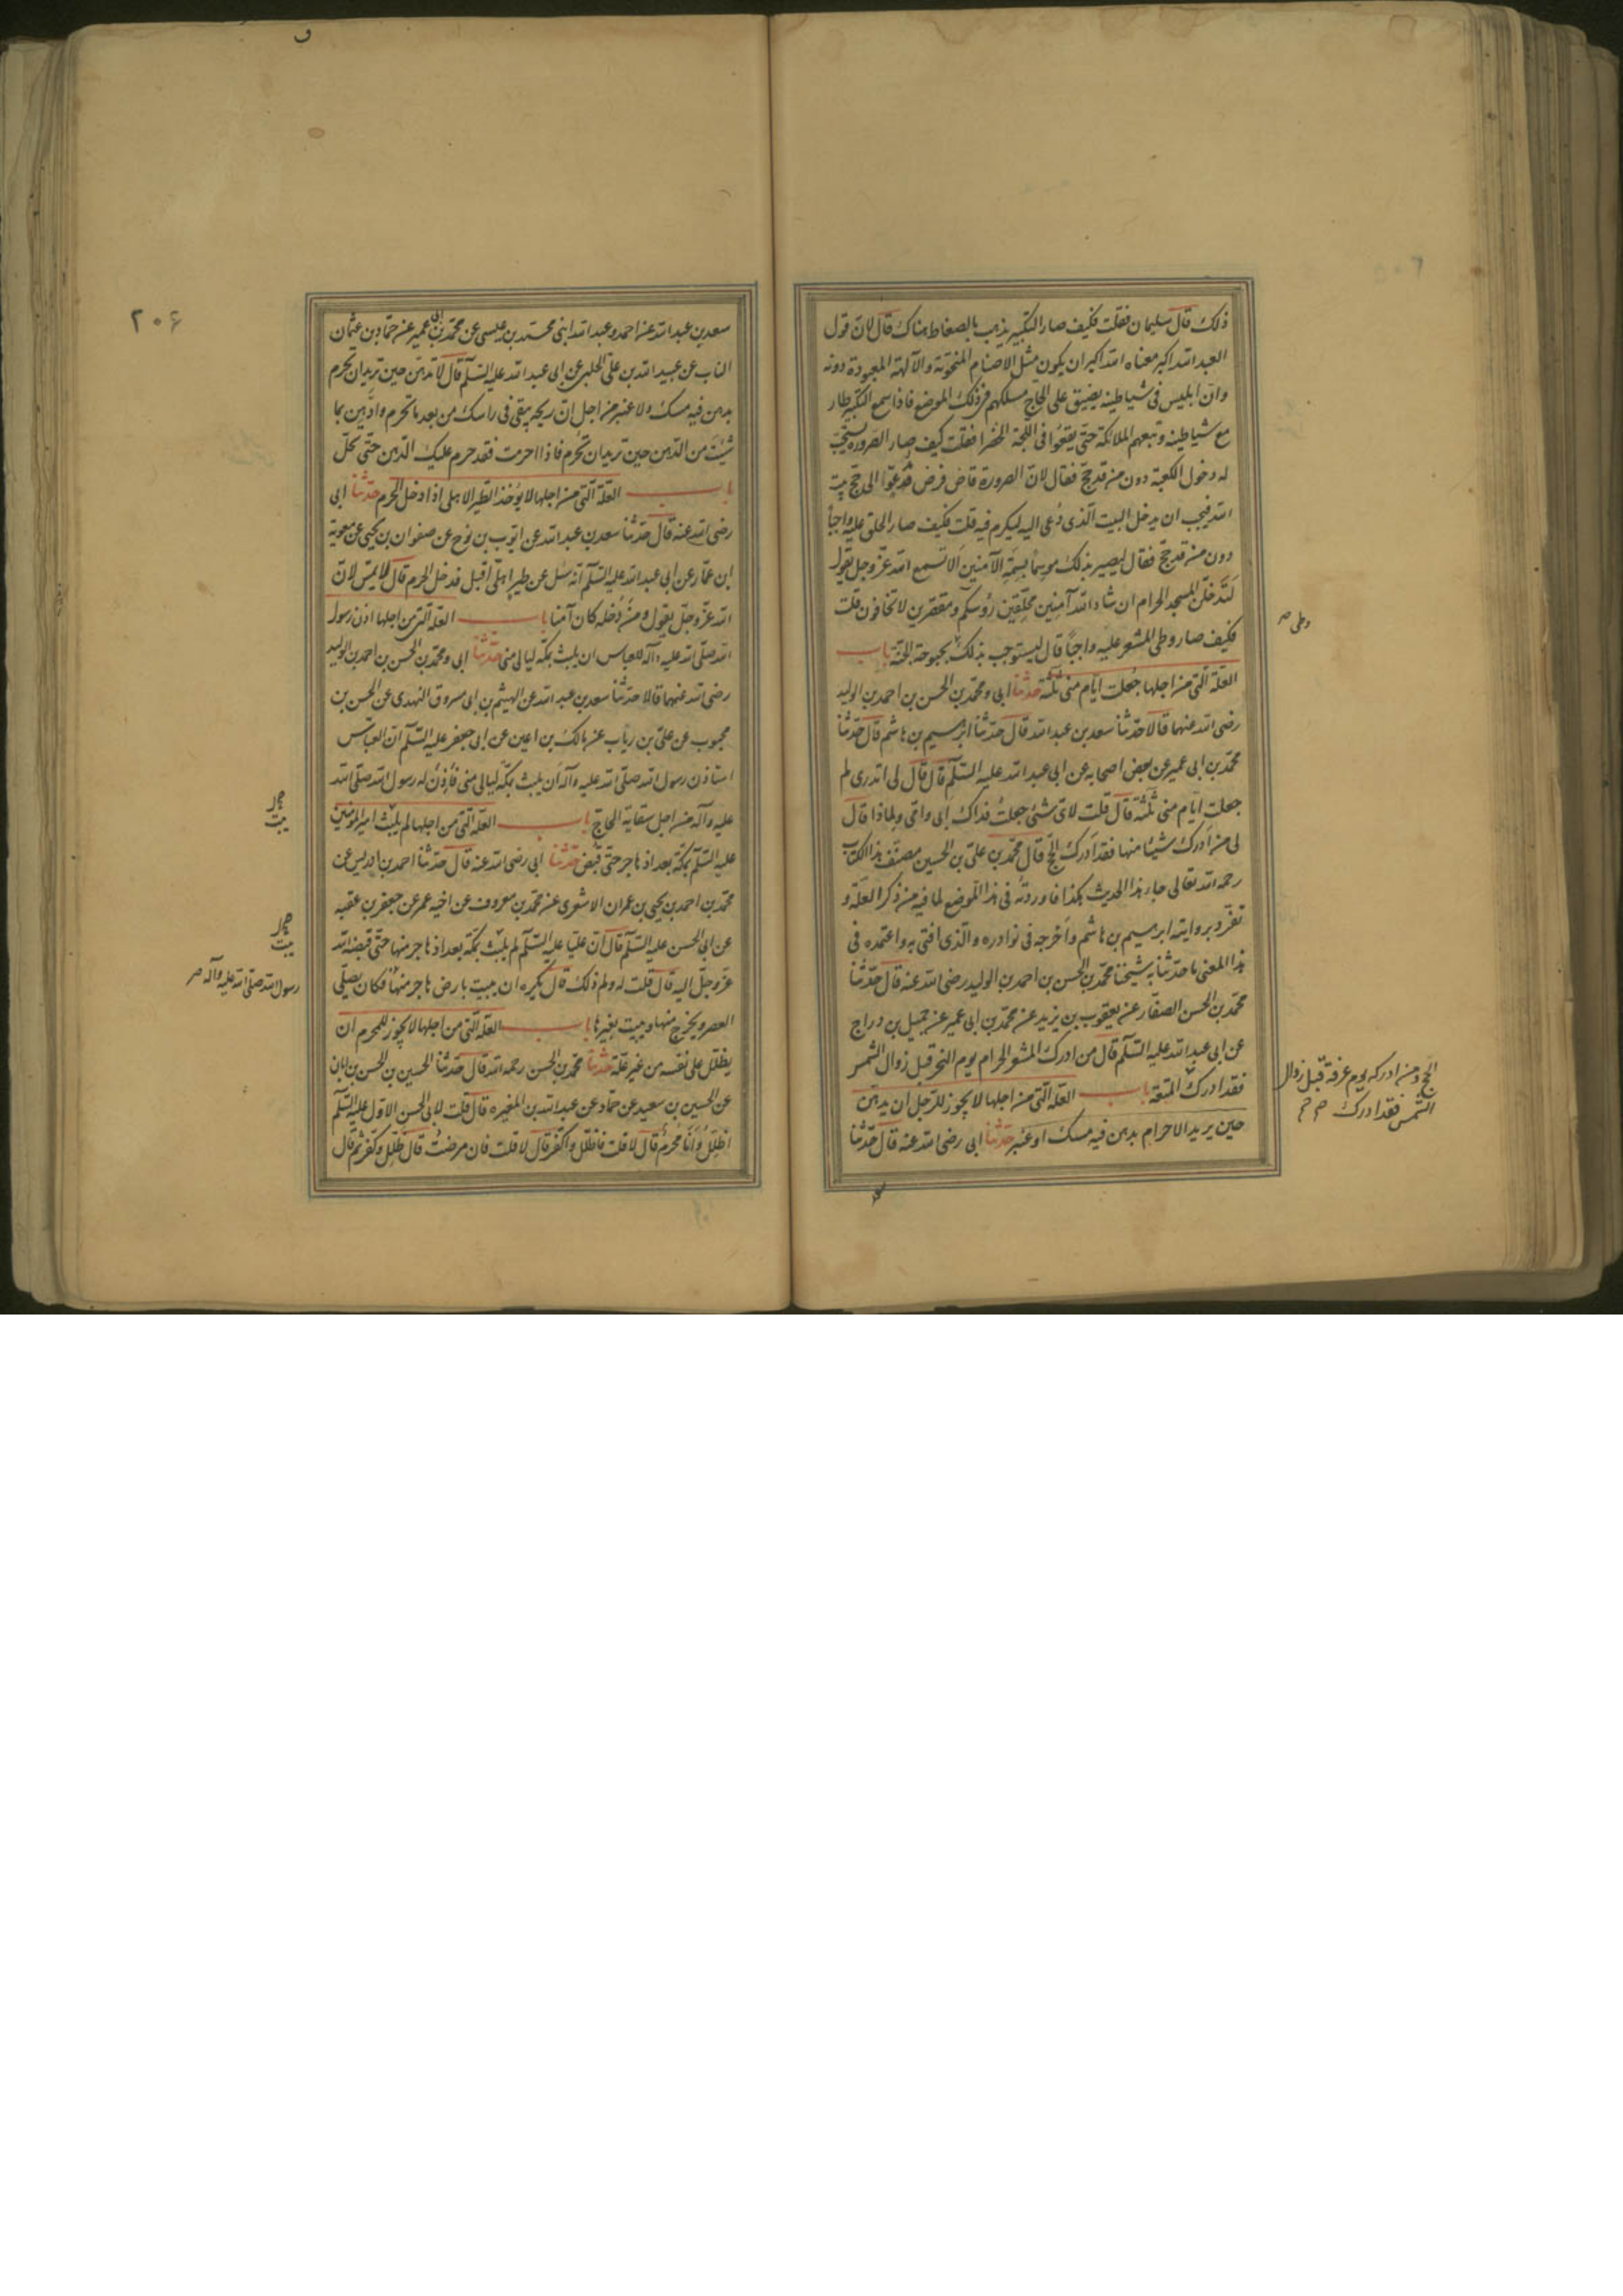 ذلك قال سليمان فقلت فكيف صار التكبير يذهب بالضغاط هناك قال لان قول
العبد الله اكبر معناه الله اكبر ان يكون مثل الاصنام المنحوتة والآلهة المعبودة دونه
وان ابليس فى شياطينه يضيق على الحاج مسلكهم فى ذلك الموضع فاذا سمع التكبير طار
مع شياطينه وتبعهم الملائكة حتى يقعوا فى اللجة الخضرا فقلت كيف صار الصرورة يستحب
له دخول الكعبة دون من قد حج فقال لان الصرورة قاضى فرض مدعوّ الى حج بيت
الله فيجب ان يدخل البيت الذى دُعى اليه ليكرم فيه قلت فكيف صار الحلق عليه واجباً
دون من قد حج فقال ليصير بذلك موسماً بسمة الآمنين الا تسمع الله عز وجل يقول
لتدخلن المسجد الحرام ان شاء الله آمنين محلقين رؤسكم ومقصرين لا تخافون قلت
فكيف صار وطى المشعر عليه واجباً قال ليستوجب بذلك بحبوحة الجنة باب
العلة التى من اجلها جعلت ايام منى ثلثة حدثنا ابى ومحمد بن الحسن بن احمد بن الوليد
رضى الله عنهما قالا حدثنا سعد بن عبد الله قال حدثنا ابرهيم بن هاشم قال حدثنا
محمد بن ابى عمير عن بعض اصحابه عن ابى عبد الله عليه السلم قال قال لى اتدرى لم
جعلت ايام منى ثلثة قال قلت لاى شئ جعلت فداك ابى وامى ولماذا قال
لى من ادرك شيئا منها فقد ادرك الحج قال محمد بن على بن الحسين مصنف هذا الكتاب
رحمه الله تعالى جاء هذا الحديث هكذا فاوردته فى هذا الموضع لما فيه من ذكر العلة و
تفرد بروايته ابرهيم بن هاشم واخرجه فى نوادره والذى افتى به واعتمده فى
هذا المعنى ما حدثنا به شيخنا محمد بن الحسن بن احمد بن الوليد رضى الله عنه قال حدثنا
محمد بن الحسن الصفار عن يعقوب بن يزيد عن محمد بن ابى عمير عن جميل بن دراج
عن ابى عبد الله عليه السلم قال من ادرك المشعر الحرام يوم النحر قبل زوال الشمس
فقد ادرك المتعة باب العلة التى من اجلها لا يجوز للرجل ان يدهن
حين يريد الاحرام بدهن فيه مسك او عنبر حدثنا ابى رضى الله عنه قال حدثنا
وطى صح
الحج ومن ادركه يوم عرفة قبل زوال
الشمس فقد ادرك
٢٠٤
سعد بن عبد الله عن احمد وعبد الله ابنى محمد بن عيسى عن محمد بن ابى عمير عن حماد بن عثمان
الناب عن عبيد الله بن على الحلبى عن ابى عبد الله عليه السلم قال لا تدهن حين تريد ان تحرم
بدهن فيه مسك ولا عنبر من اجل ان ريحه يبقى فى راسك من بعد ما تحرم وادهن بما
شئت من الدهن حين تريد ان تحرم فاذا احرمت فقد حرم عليك الدهن حتى تحل
باب العلة التى من اجلها لا يؤخذ الطير الاهلى اذا دخل الحرم حدثنا ابى
رضى الله عنه قال حدثنا سعد بن عبد الله عن ايوب بن نوح عن صفوان بن يحيى عن معوية
ابن عمار عن ابى عبد الله عليه السلم انه سئل عن طير اهلى اقبل فدخل الحرم قال لا يمس لان
الله عز وجل يقول ومن دخله كان آمنا باب العلة التى من اجلها اذن رسول
الله صلى الله عليه وآله للعباس ان يلبث بمكة ليالى منى حدثنا ابى ومحمد بن الحسن بن احمد بن الوليد
رضى الله عنهما قالا حدثنا سعد بن عبد الله عن الهيثم بن ابى مسروق النهدى عن الحسن بن
محبوب عن على بن رياب عن مالك بن اعين عن ابى جعفر عليه السلم ان العباس
استاذن رسول الله صلى الله عليه وآله ان يلبث بمكة ليالى منى فاذن له رسول الله صلى الله
عليه وآله من اجل سقاية الحاج باب العلة التى من اجلها لم يلبث امير المؤمنين
عليه السلم بمكة بعد اذ هاجر حتى قبض حدثنا ابى رضى الله عنه قال حدثنا احمد بن ادريس عن
محمد بن احمد بن يحيى بن عمران الاشعرى عن محمد بن معروف عن اخيه عمر عن جعفر بن عقبه
عن ابى الحسن عليه السلم قال ان عليا عليه السلم لم يلبث بمكة بعد اذ هاجر منها حتى قبضه الله
عز وجل اليه قال قلت له ولم ذلك قال يكره ان يبيت بارض هاجر منها فكان يصلى
العصر ويخرج منها ويبيت بغيرها باب العلة التى من اجلها لا يجوز للمحرم ان
يظلل على نفسه من غير علة حدثنا محمد بن الحسن رحمه الله قال حدثنا الحسين بن الحسن بن ابان
عن الحسين بن سعيد عن حماد عن عبد الله بن المغيره قال قلت لابى الحسن الاول عليه السلم
اظلل وانا محرم قال لا قلت فاظلل واكفر قال لا قلت فان مرضت قال ظلل وكفر ثم قال
يبت
يبت
رسول الله صلى الله عليه وآله صح